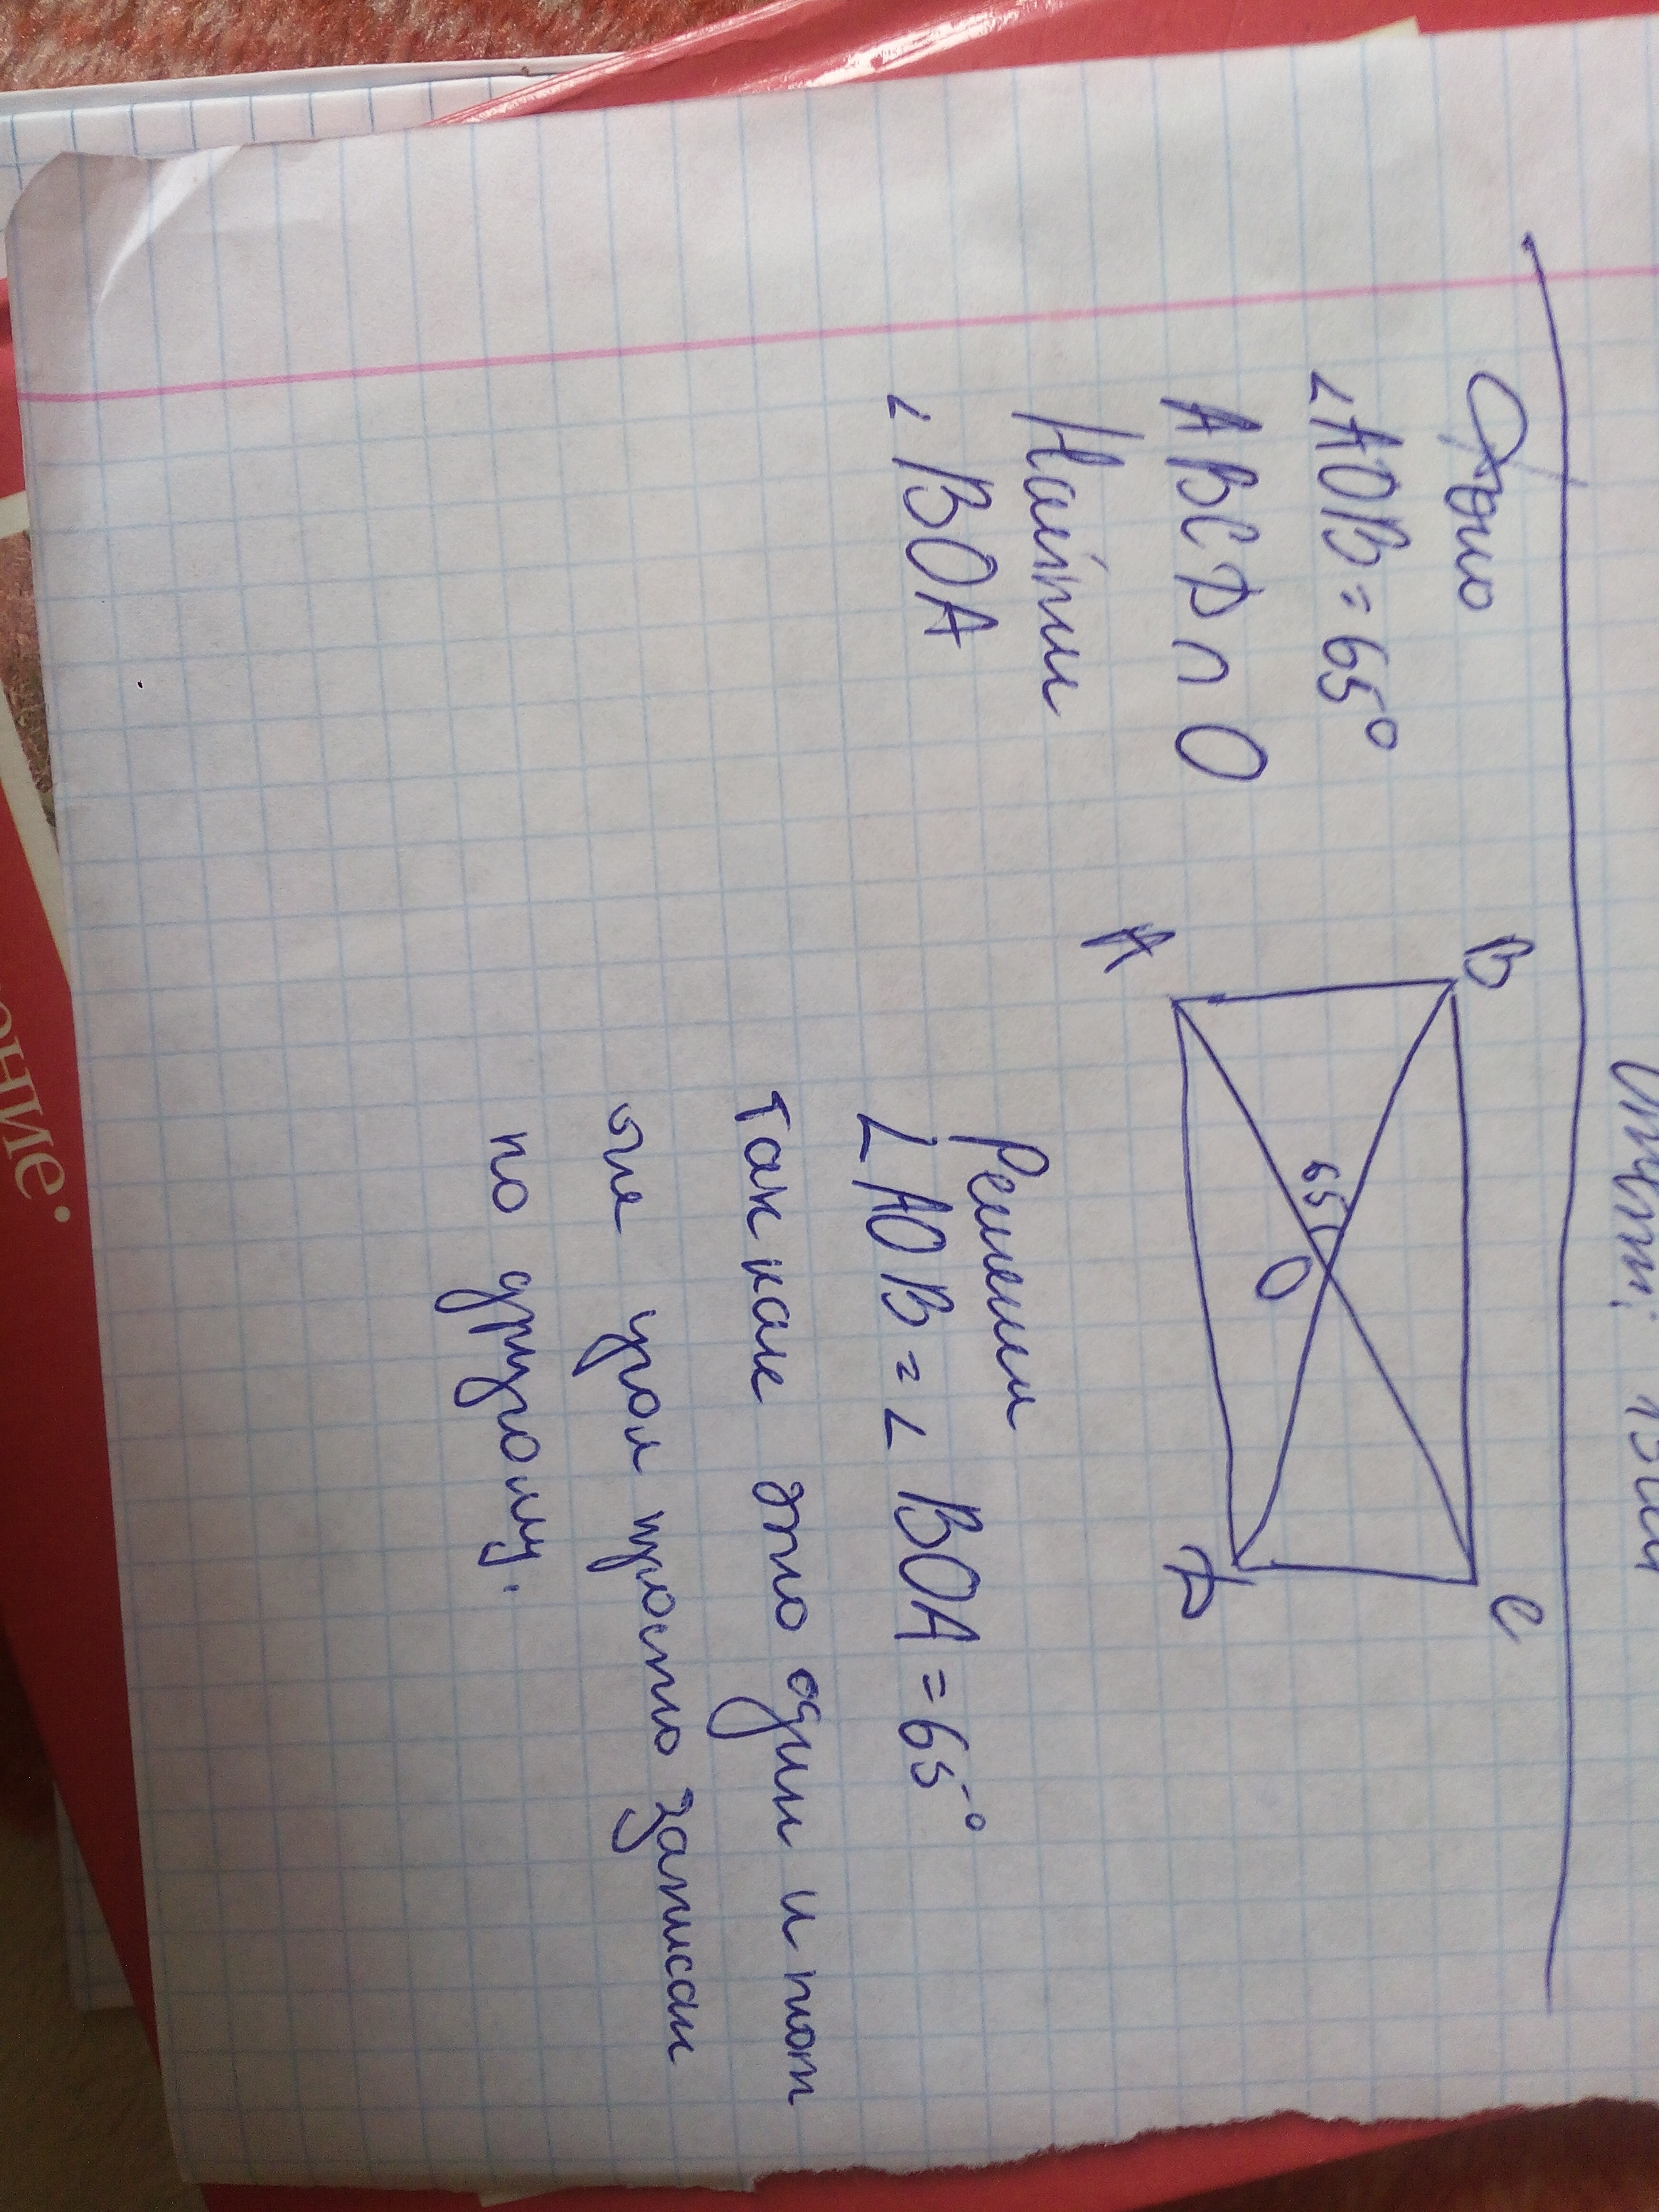 Ответ:
Дано
∠AOB=65°
ABCD ∩ O
Найти
∠BOA
B
C
65
O
A
D
Решении
∠AOB=∠BOA=65°
так как это один и тот
же угол просто записан
по другому.
ание.